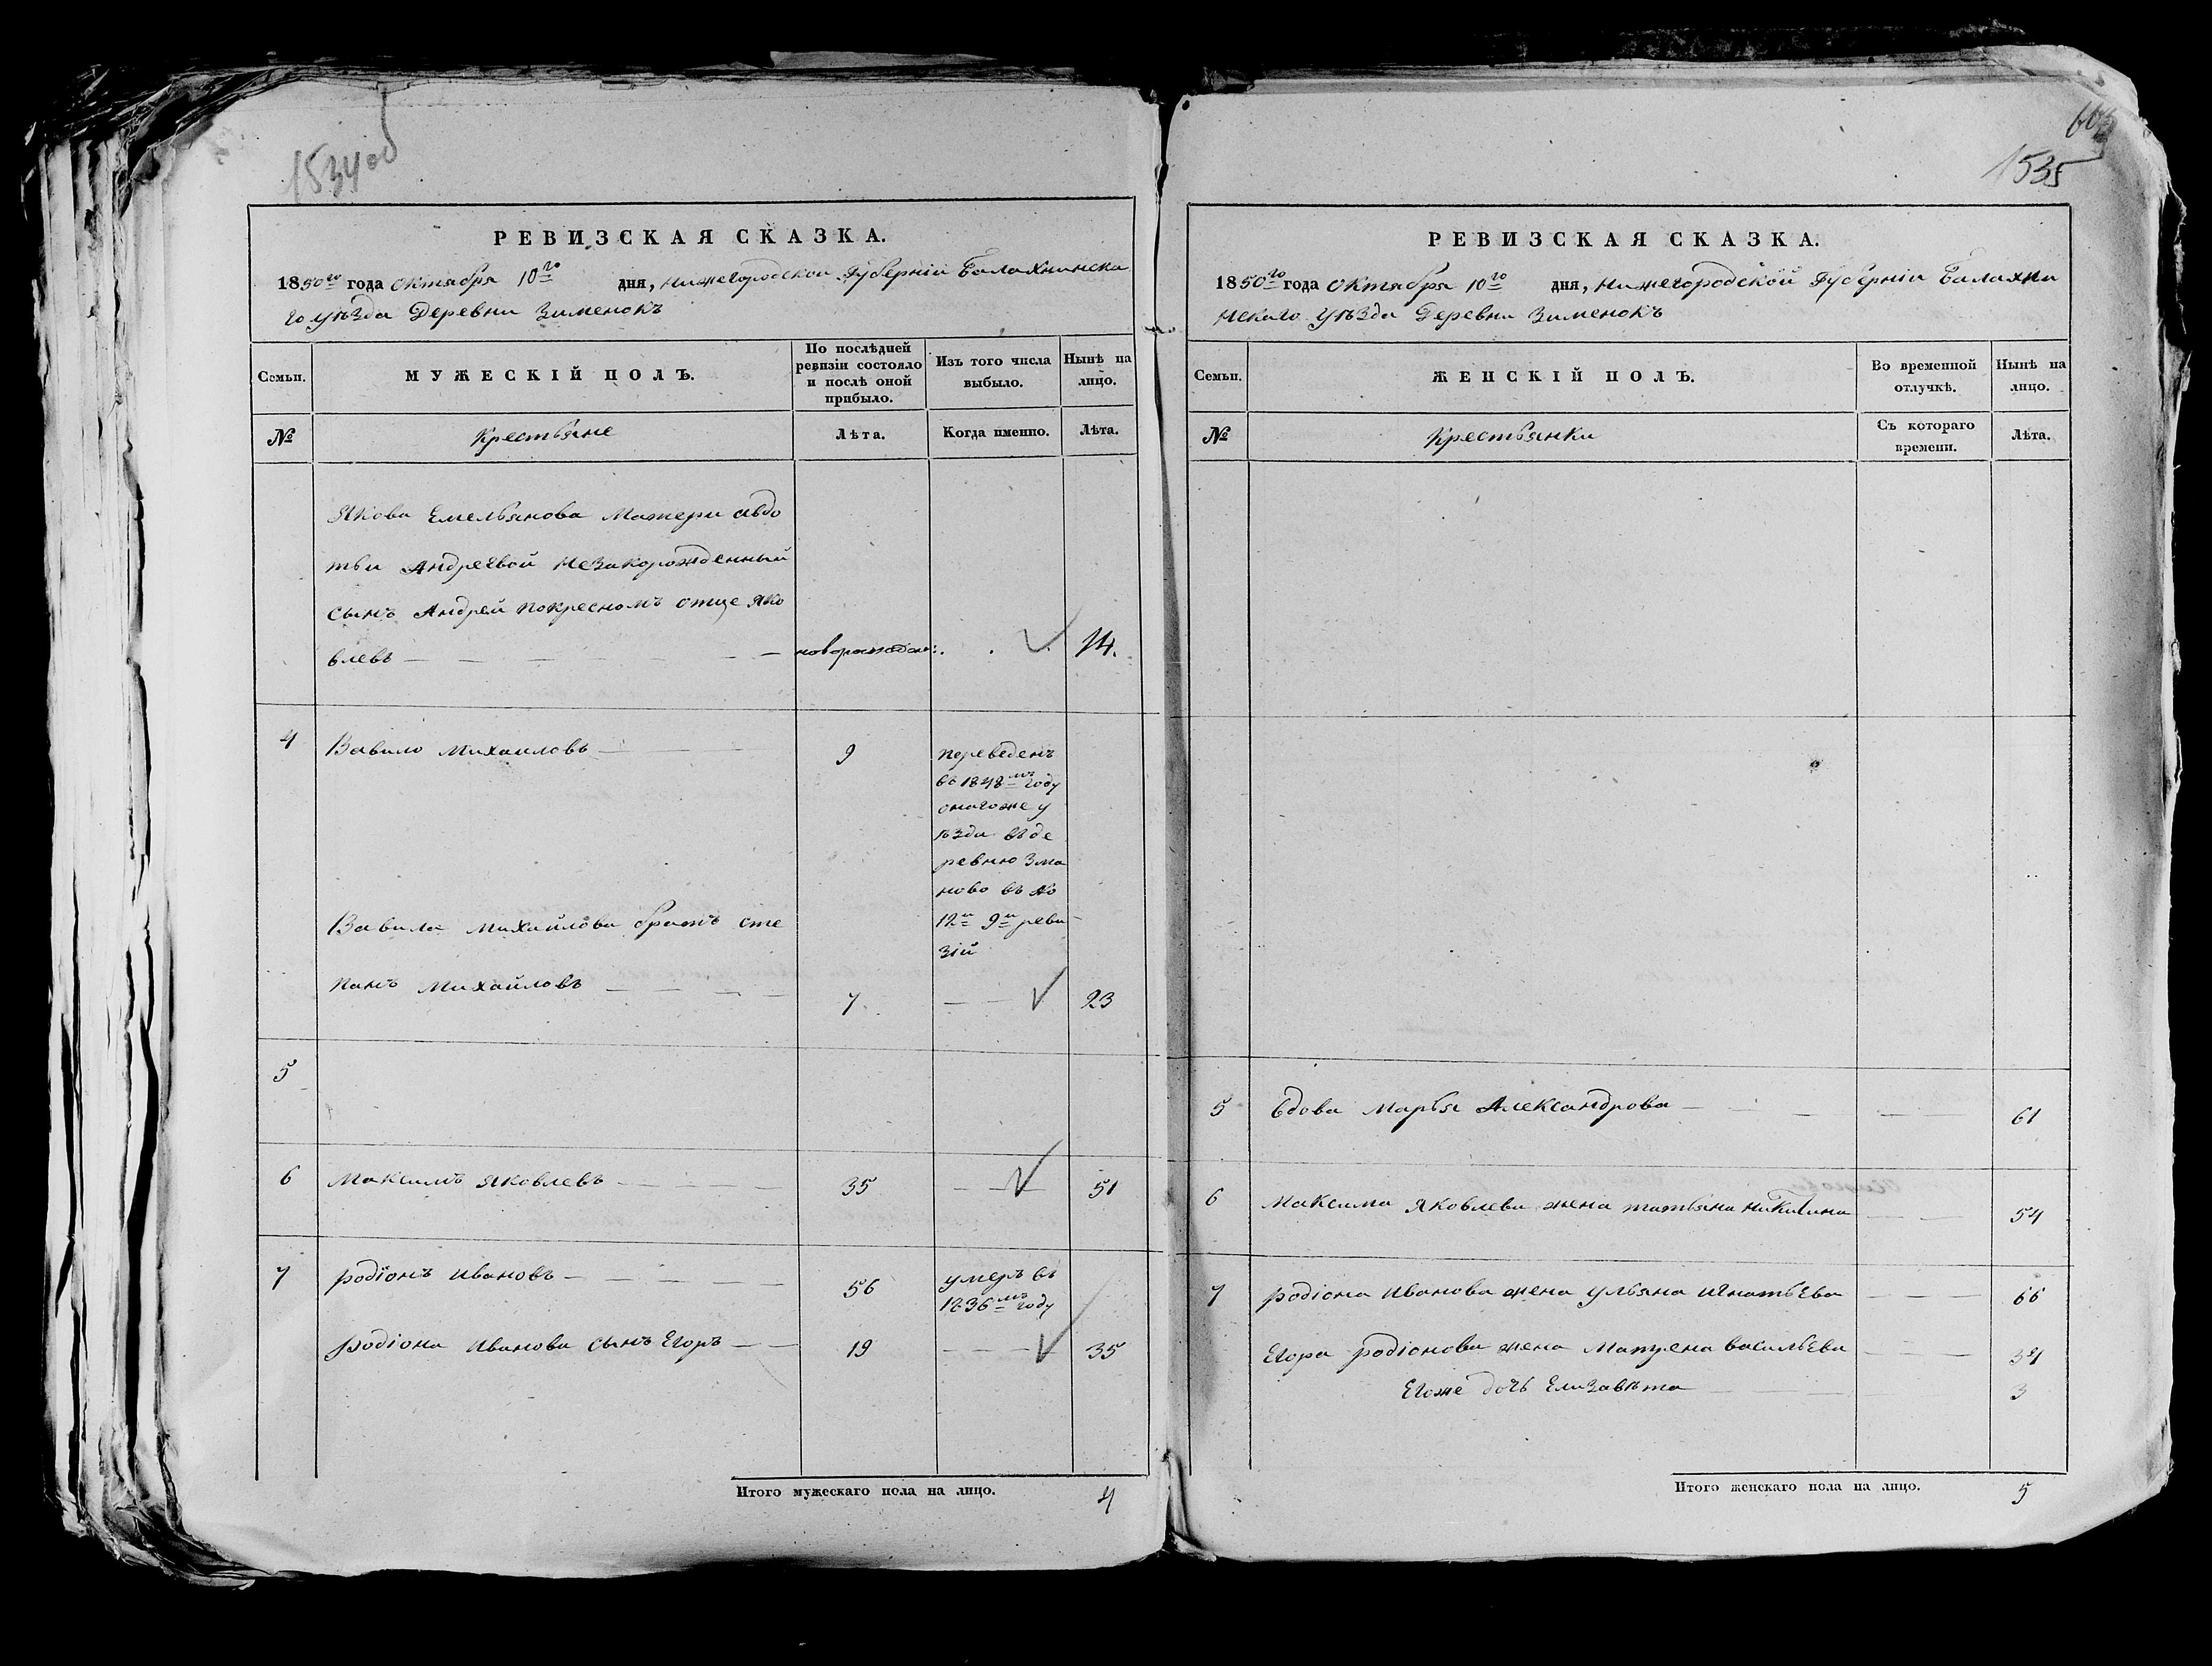 1534 об
РЕВИЗСКАЯ СКАЗКА.
1850го года Октября 10го дня, Нижегородской Губерніи Балахнинска
го уѣзда Деревни Зименокъ
Семьи.
МУЖЕСКІЙ ПОЛЪ.
По послѣдней ревизіи состояло и послѣ оной прибыло.
Изъ того числа выбыло.
Нынѣ на лицо.
№
Крестьяне
Лѣта.
Когда именно.
Лѣта.
Якова Емельянова Матери авдо
тьи Андреевой Незакорожденный
сынъ Андрей покресномъ отце яко
влевъ — новорожден: 14.
4 Вавило Михаиловъ — 9 переведенъ
въ 1848мъ году
оногоже у
ѣзда въ де
ревню
ново въ №
12й 9й реви
зій
Вавила Михайлова братъ сте
панъ Михайловъ — 7. — 23
5
6 Максимъ Яковлевъ — 35 — 51
7 родіонъ Ивановъ — 56 умеръ въ
1836мъ году
родіона Иванова сынъ Егоръ — 19 — 35
Итого мужескаго пола на лицо. 4
1535
РЕВИЗСКАЯ СКАЗКА.
1850го года Октября 10го дня, Нижегородской Губерніи Балахни
нскаго Уѣзда Деревни Зименокъ
Семьи.
ЖЕНСКІЙ ПОЛЪ.
Во временной отлучкѣ.
Нынѣ на лицо.
№
Крестьянки
Съ котораго времени.
Лѣта.
5 вдова Марья Александрова — 61
6 Максима Яковлева жена татьяна Никитина — 54
7 родіона Иванова жена ульяна Игнатьева — 66
Егора родіонова жена Матрена васильева — 34
Егоже дочь Елизавѣта — 3
Итого женскаго пола на лицо. 5